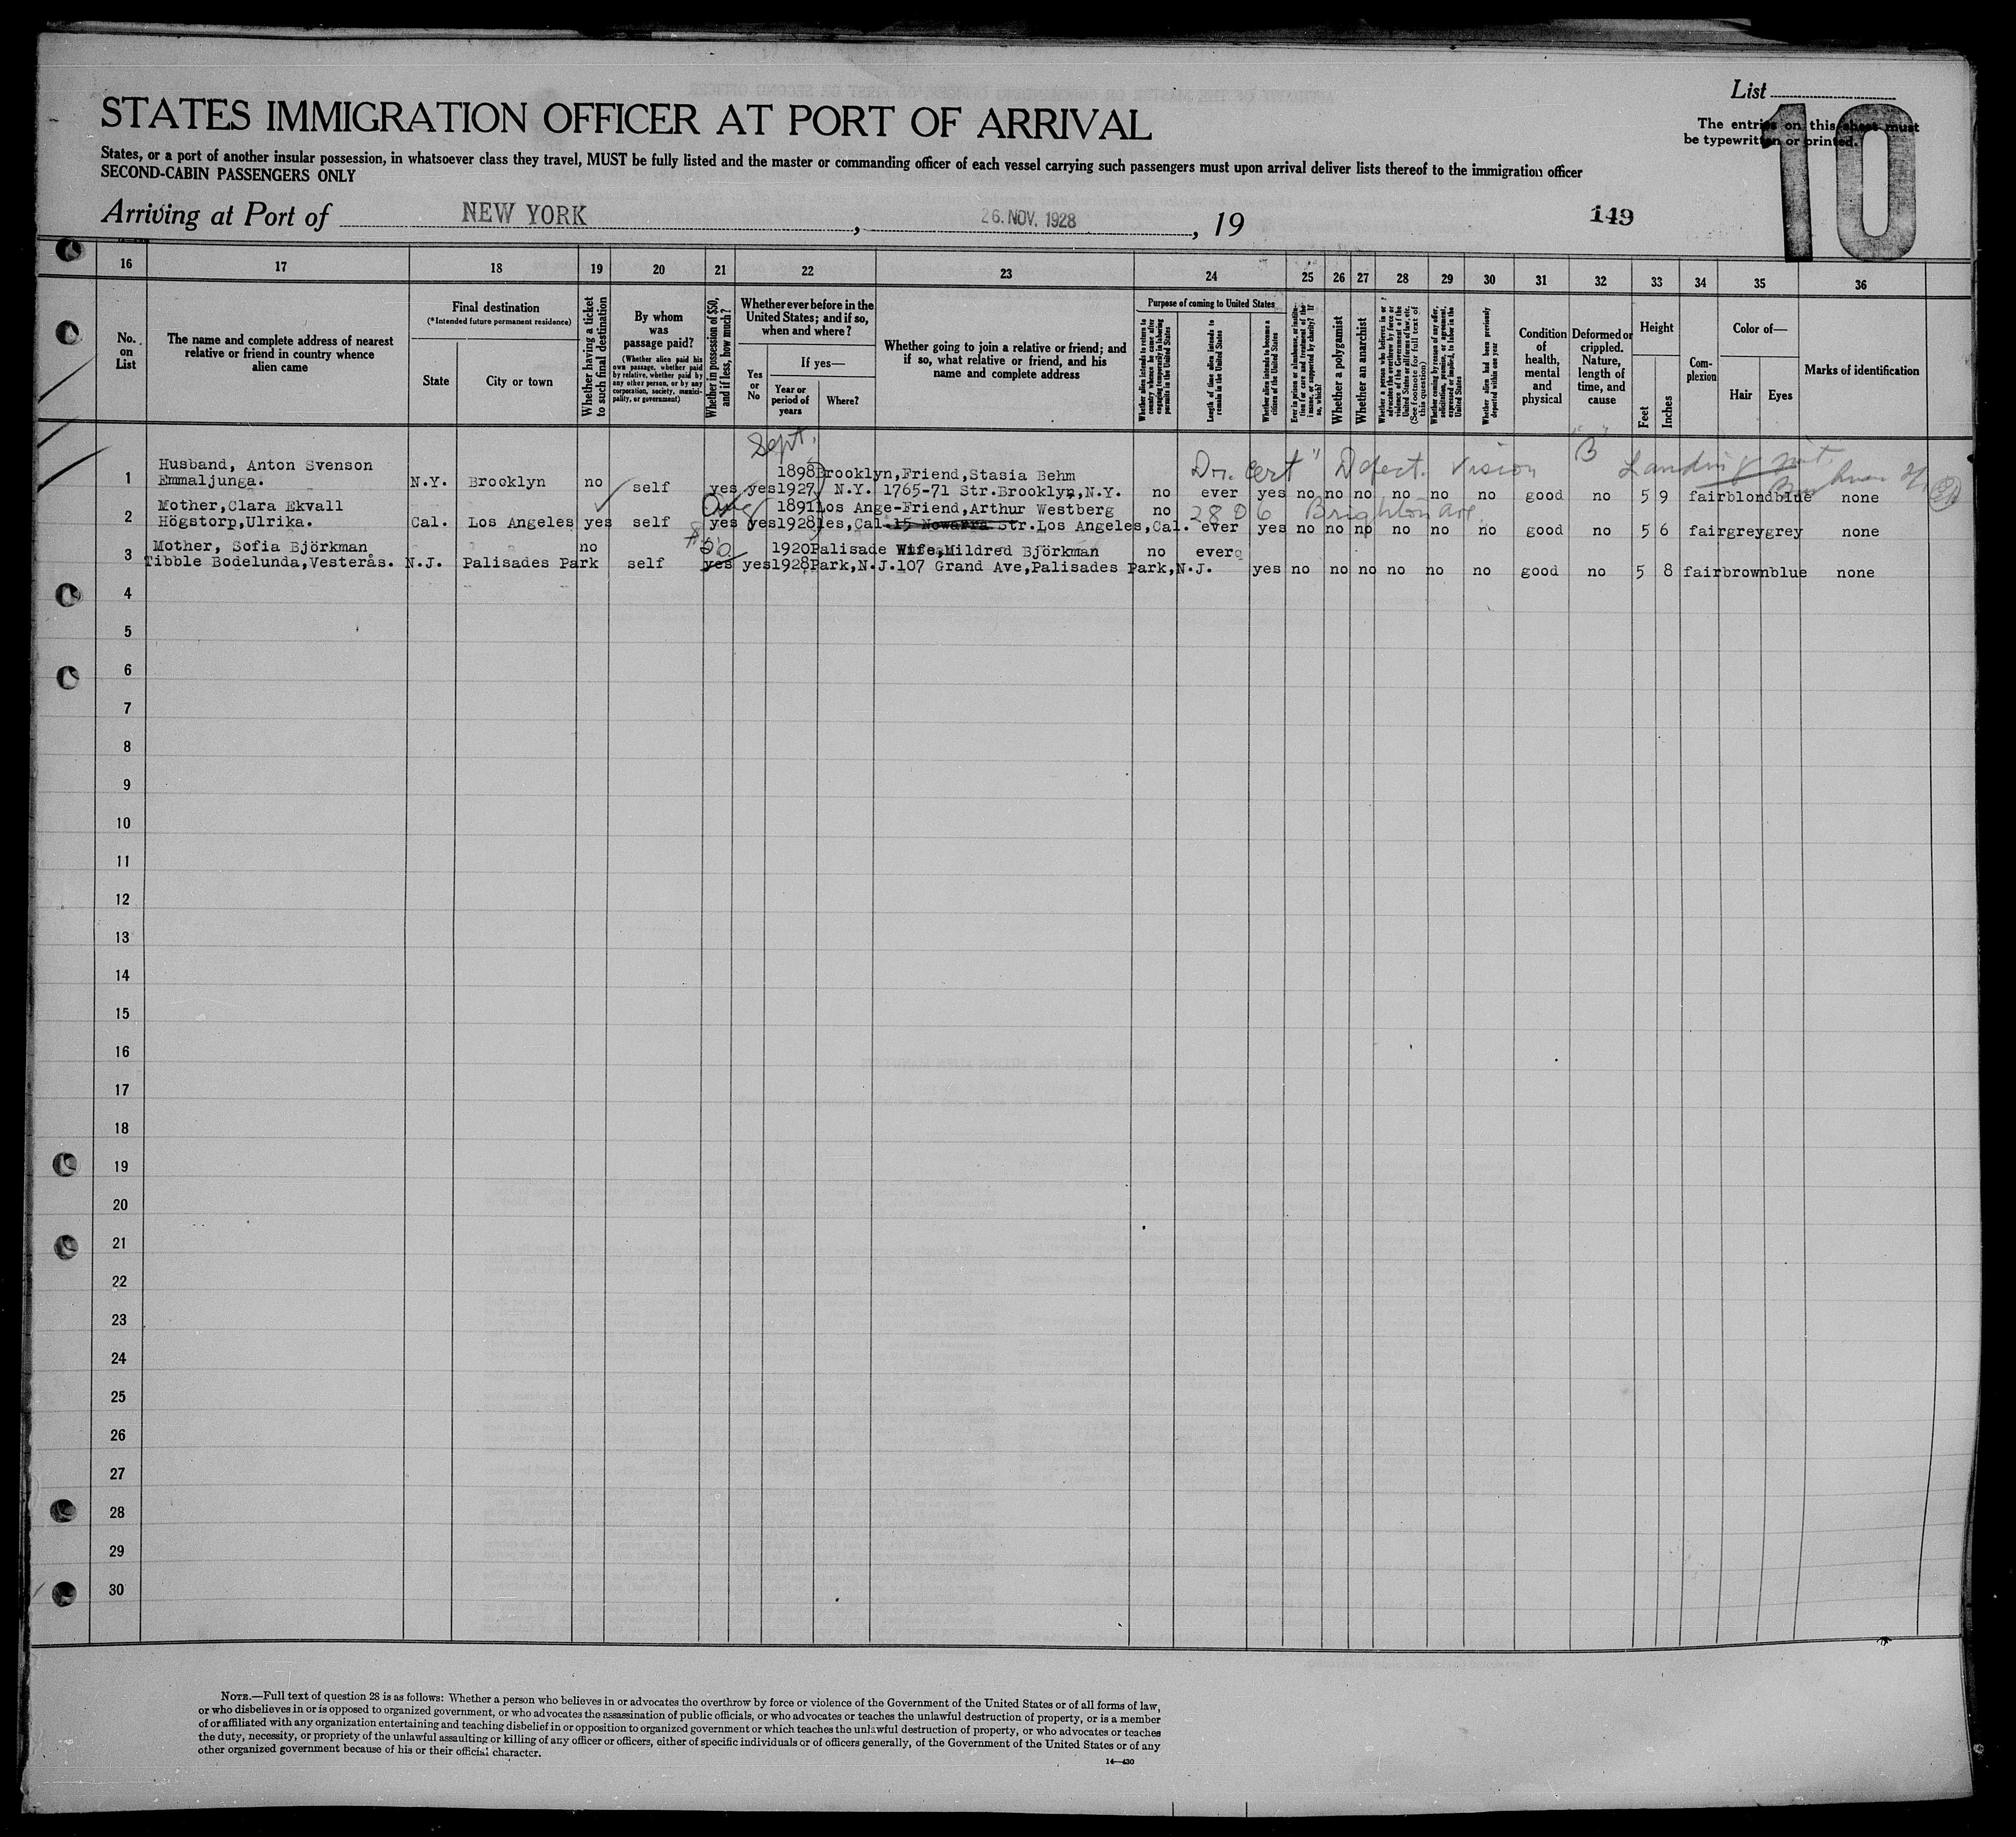 List
10
STATES IMMIGRATION OFFICER AT PORT OF ARRIVAL
The entries on this sheet must
be typewritten or printed.
States, or a port of another insular possession, in whatsoever class they travel, MUST be fully listed and the master or commanding officer of each vessel carrying such passengers must upon arrival deliver lists thereof to the immigration officer
SECOND-CABIN PASSENGERS ONLY
Arriving at Port of NEW YORK , 26. NOV. 1928 , 19
149
16 17 18 19 20 21 22 23 24 25 26 27 28 29 30 31 32 33 34 35 36
No. on List
The name and complete address of nearest relative or friend in country whence alien came
Final destination
(*Intended future permanent residence)
State
City or town
Whether having a ticket to such final destination
By whom was passage paid?
(Whether alien paid his own passage, whether paid by relative, whether paid by any other person, or by any corporation, society, municipality, or government)
Whether in possession of $50, and if less, how much?
Whether ever before in the United States; and if so, when and where?
Yes or No
If yes—
Year or period of years
Where?
Whether going to join a relative or friend; and if so, what relative or friend, and his name and complete address
Purpose of coming to United States
Whether alien intends to return to country whence he came after engaging temporarily in laboring pursuits in the United States
Length of time alien intends to remain in the United States
Whether alien intends to become a citizen of the United States
Ever in prison or almshouse, or institution for care and treatment of the insane, or supported by charity? If so, which?
Whether a polygamist
Whether an anarchist
Whether a person who believes in or advocates the overthrow by force or violence of the Government of the United States or all forms of law, etc. (See footnote for full text of this question)
Whether coming by reason of any offer, solicitation, promise, or agreement, expressed or implied, to labor in the United States
Whether alien had been previously deported within one year
Condition of health, mental and physical
Deformed or crippled. Nature, length of time, and cause
Height
Feet
Inches
Complexion
Color of—
Hair
Eyes
Marks of identification
Sept. Dr. Cert " Defect. Vision "B"
1 Husband, Anton Svenson 1898 Brooklyn,Friend,Stasia Behm
Emmaljunga. N.Y. Brooklyn no self yes yes 1927 N.Y. 1765-71 Str.Brooklyn,N.Y. no ever yes no no no no no no good no 5 9 fair blond blue none
2 Mother,Clara Ekvall 1891 Los Ange-Friend,Arthur Westberg no 2806 Brighton Ave.
Högstorp,Ulrika. Cal. Los Angeles yes self yes yes 1928 les,Cal. 15 Nowarra Str.Los Angeles,Cal. ever yes no no no no no no good no 5 6 fair grey grey none
3 Mother, Sofia Björkman no $50 1920 Palisade Wife,Mildred Björkman no ever
Tibble Bodelunda,Vesterås. N.J. Palisades Park self yes yes 1928 Park,N.J. 107 Grand Ave,Palisades Park,N.J. yes no no no no no no good no 5 8 fair brown blue none
4
5
6
7
8
9
10
11
12
13
14
15
16
17
18
19
20
21
22
23
24
25
26
27
28
29
30
NOTE.—Full text of question 28 is as follows: Whether a person who believes in or advocates the overthrow by force or violence of the Government of the United States or of all forms of law,
or who disbelieves in or is opposed to organized government, or who advocates the assassination of public officials, or who advocates or teaches the unlawful destruction of property, or is a member
of or affiliated with any organization entertaining and teaching disbelief in or opposition to organized government or which teaches the unlawful destruction of property, or who advocates or teaches
the duty, necessity, or propriety of the unlawful assaulting or killing of any officer or officers, either of specific individuals or of officers generally, of the Government of the United States or of any
other organized government because of his or their official character.
14—430